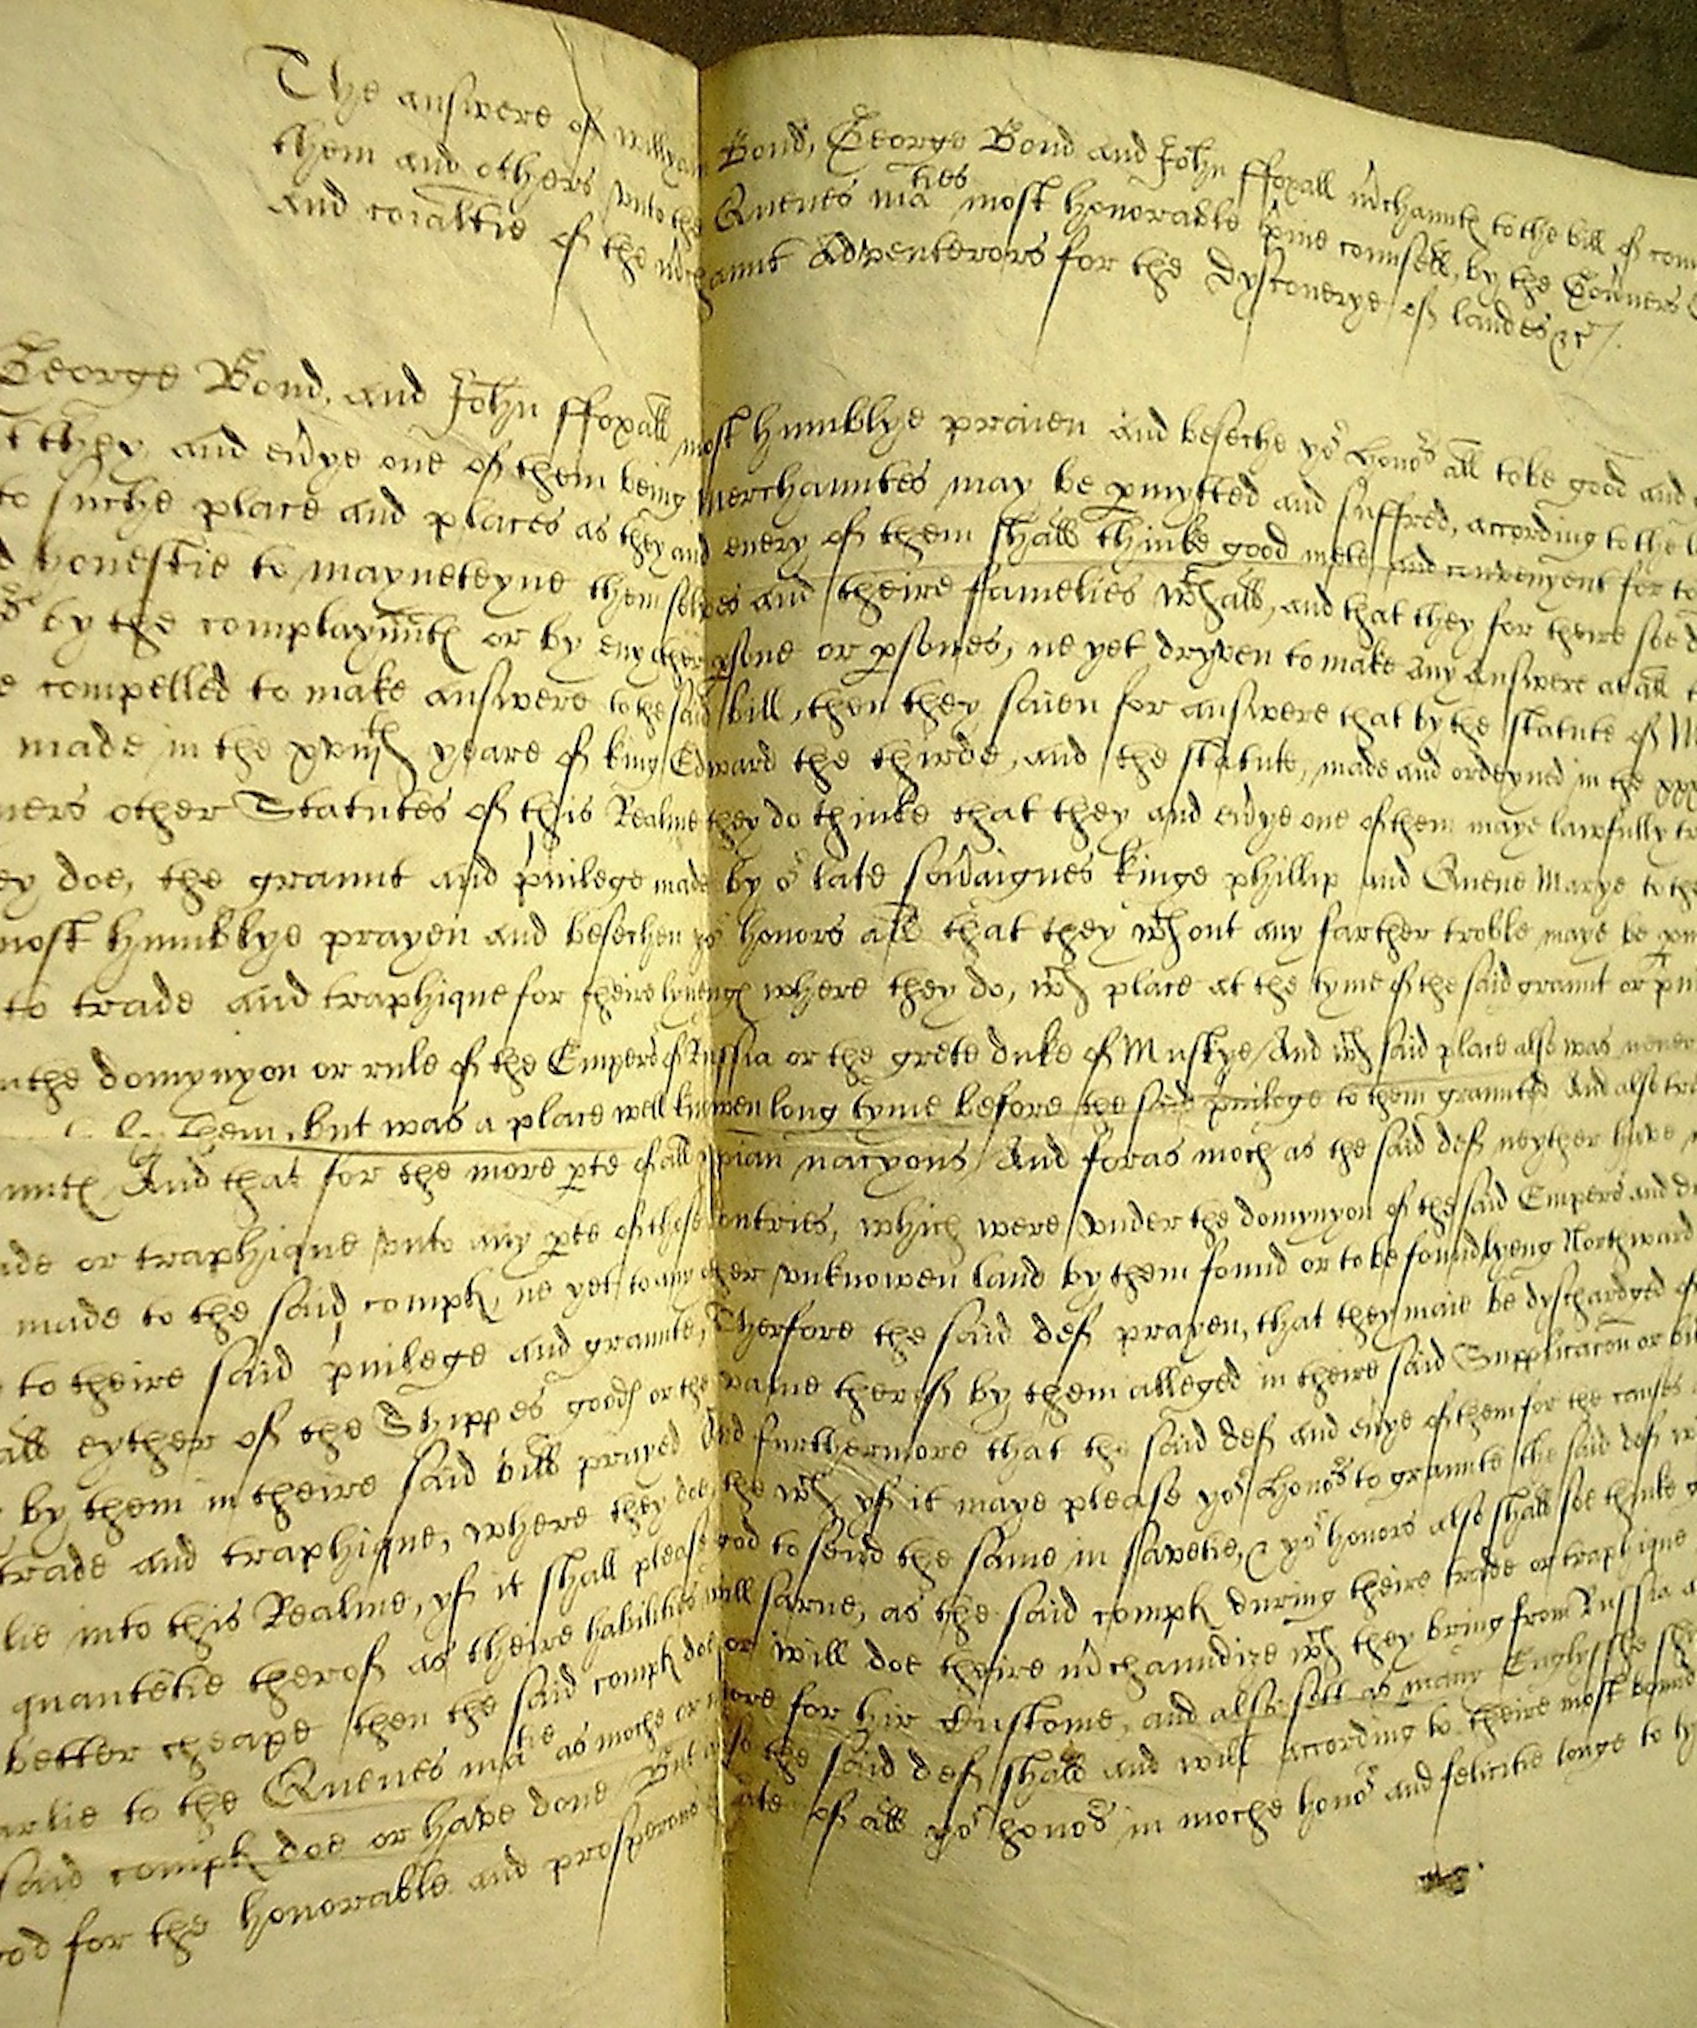 The answere of Willyam Bond, George Bond and John ffoxall mchaunts to the bill of com
them and others vnto the Quenes maties most honorable pvie counsell, by the Gouners
and coialtie of the mchaunt Adventerors for the Dyscouerye of landes &c
George Bond, and John ffoxall most humblye praien and beseche yor honors all to be good and
t they and euye one of them being merchauntes may be pmytted and suffred, according to the
to suche place and places as they and euery of them shall thinke good mete and convenyent for to
d honestie to mayneteyne themselves and theire famelies wth all, and that they for theire soe d
by the complaynnts or by eny other psone or psones, ne yet dryven to make any answere at all
e compelled to make answere to the said bill, then they saien for answere that by the statute of M
made in the xviijth yeare of king Edward the thirde, and the statute, made and ordeyned in the xxx
ners other Statutes of this Realme they do thinke that they and euye one of them maye lawfully tr
ey doe, the graunt and pvilege made by or late soueraignes kinge phillip and Quene Marye to the
most humblye prayen and besechen yor honors all that they wthout any farther troble maye be pm
to trade and traphique for theire lyvengs where they do, wch place at the tyme of the said graunt or pvi
n the domynyon or rule of the Emperor of Russia or the grete duke of Muskye And wch said place also was neuer
by them, but was a place well knowen long tyme before the said pvilege to them graunted And also tra
nnts And that for the more pte of all xpian nacyons And foras moch as the said defs neyther have
ade or traphique vnto any pte of those contries, which were vnder the domynyon of the said Emperor and d
made to the said complts, ne yet to any other vnknowen land by them found or to be found lyeng Northward
to theire said pvilege and graunte, Therfore the said defs prayen, that they maie be dyschardged of
all eyther of the Shippes goods or the value therof by them alleged in theire said Supplicacon or bil
by them in theire said bill prayed And furthermore that the said defs and euye of them for the causes
trade and traphique, where they doe, the wch yf it maye please yor honors to graunte the said defs w
lie into this Realme, yf it shall please god to send the same in savetie, & yor honors also shall soe thinke g
quantetie therof as theire habilities will sarve, as the said complts during theire trade or traphique
better cheape then the said complts doe or will doe theire mchaundize wch they bring from Russia a
arlie to the Quenes matie as moche or more for hir Custome, and also sett as many Englysshe sh
said complts doe or have done But also the said defs shall and will according to theire most bound
od for the honorable and prosperous estate of all yor honors in moche honor and felicitie longe to ly